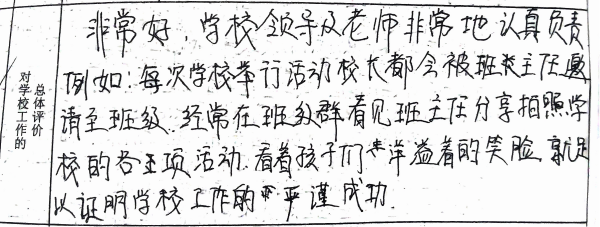 对学校工作的
总体评价
非常好，学校领导及老师非常地认真负责
例如：每次学校举行活动校长都会被班主任邀
请至班级.经常在班级群看见班主任分享拍照学
校的各项活动.看着孩子们洋溢着的笑脸就足
以证明学校工作的严谨成功.